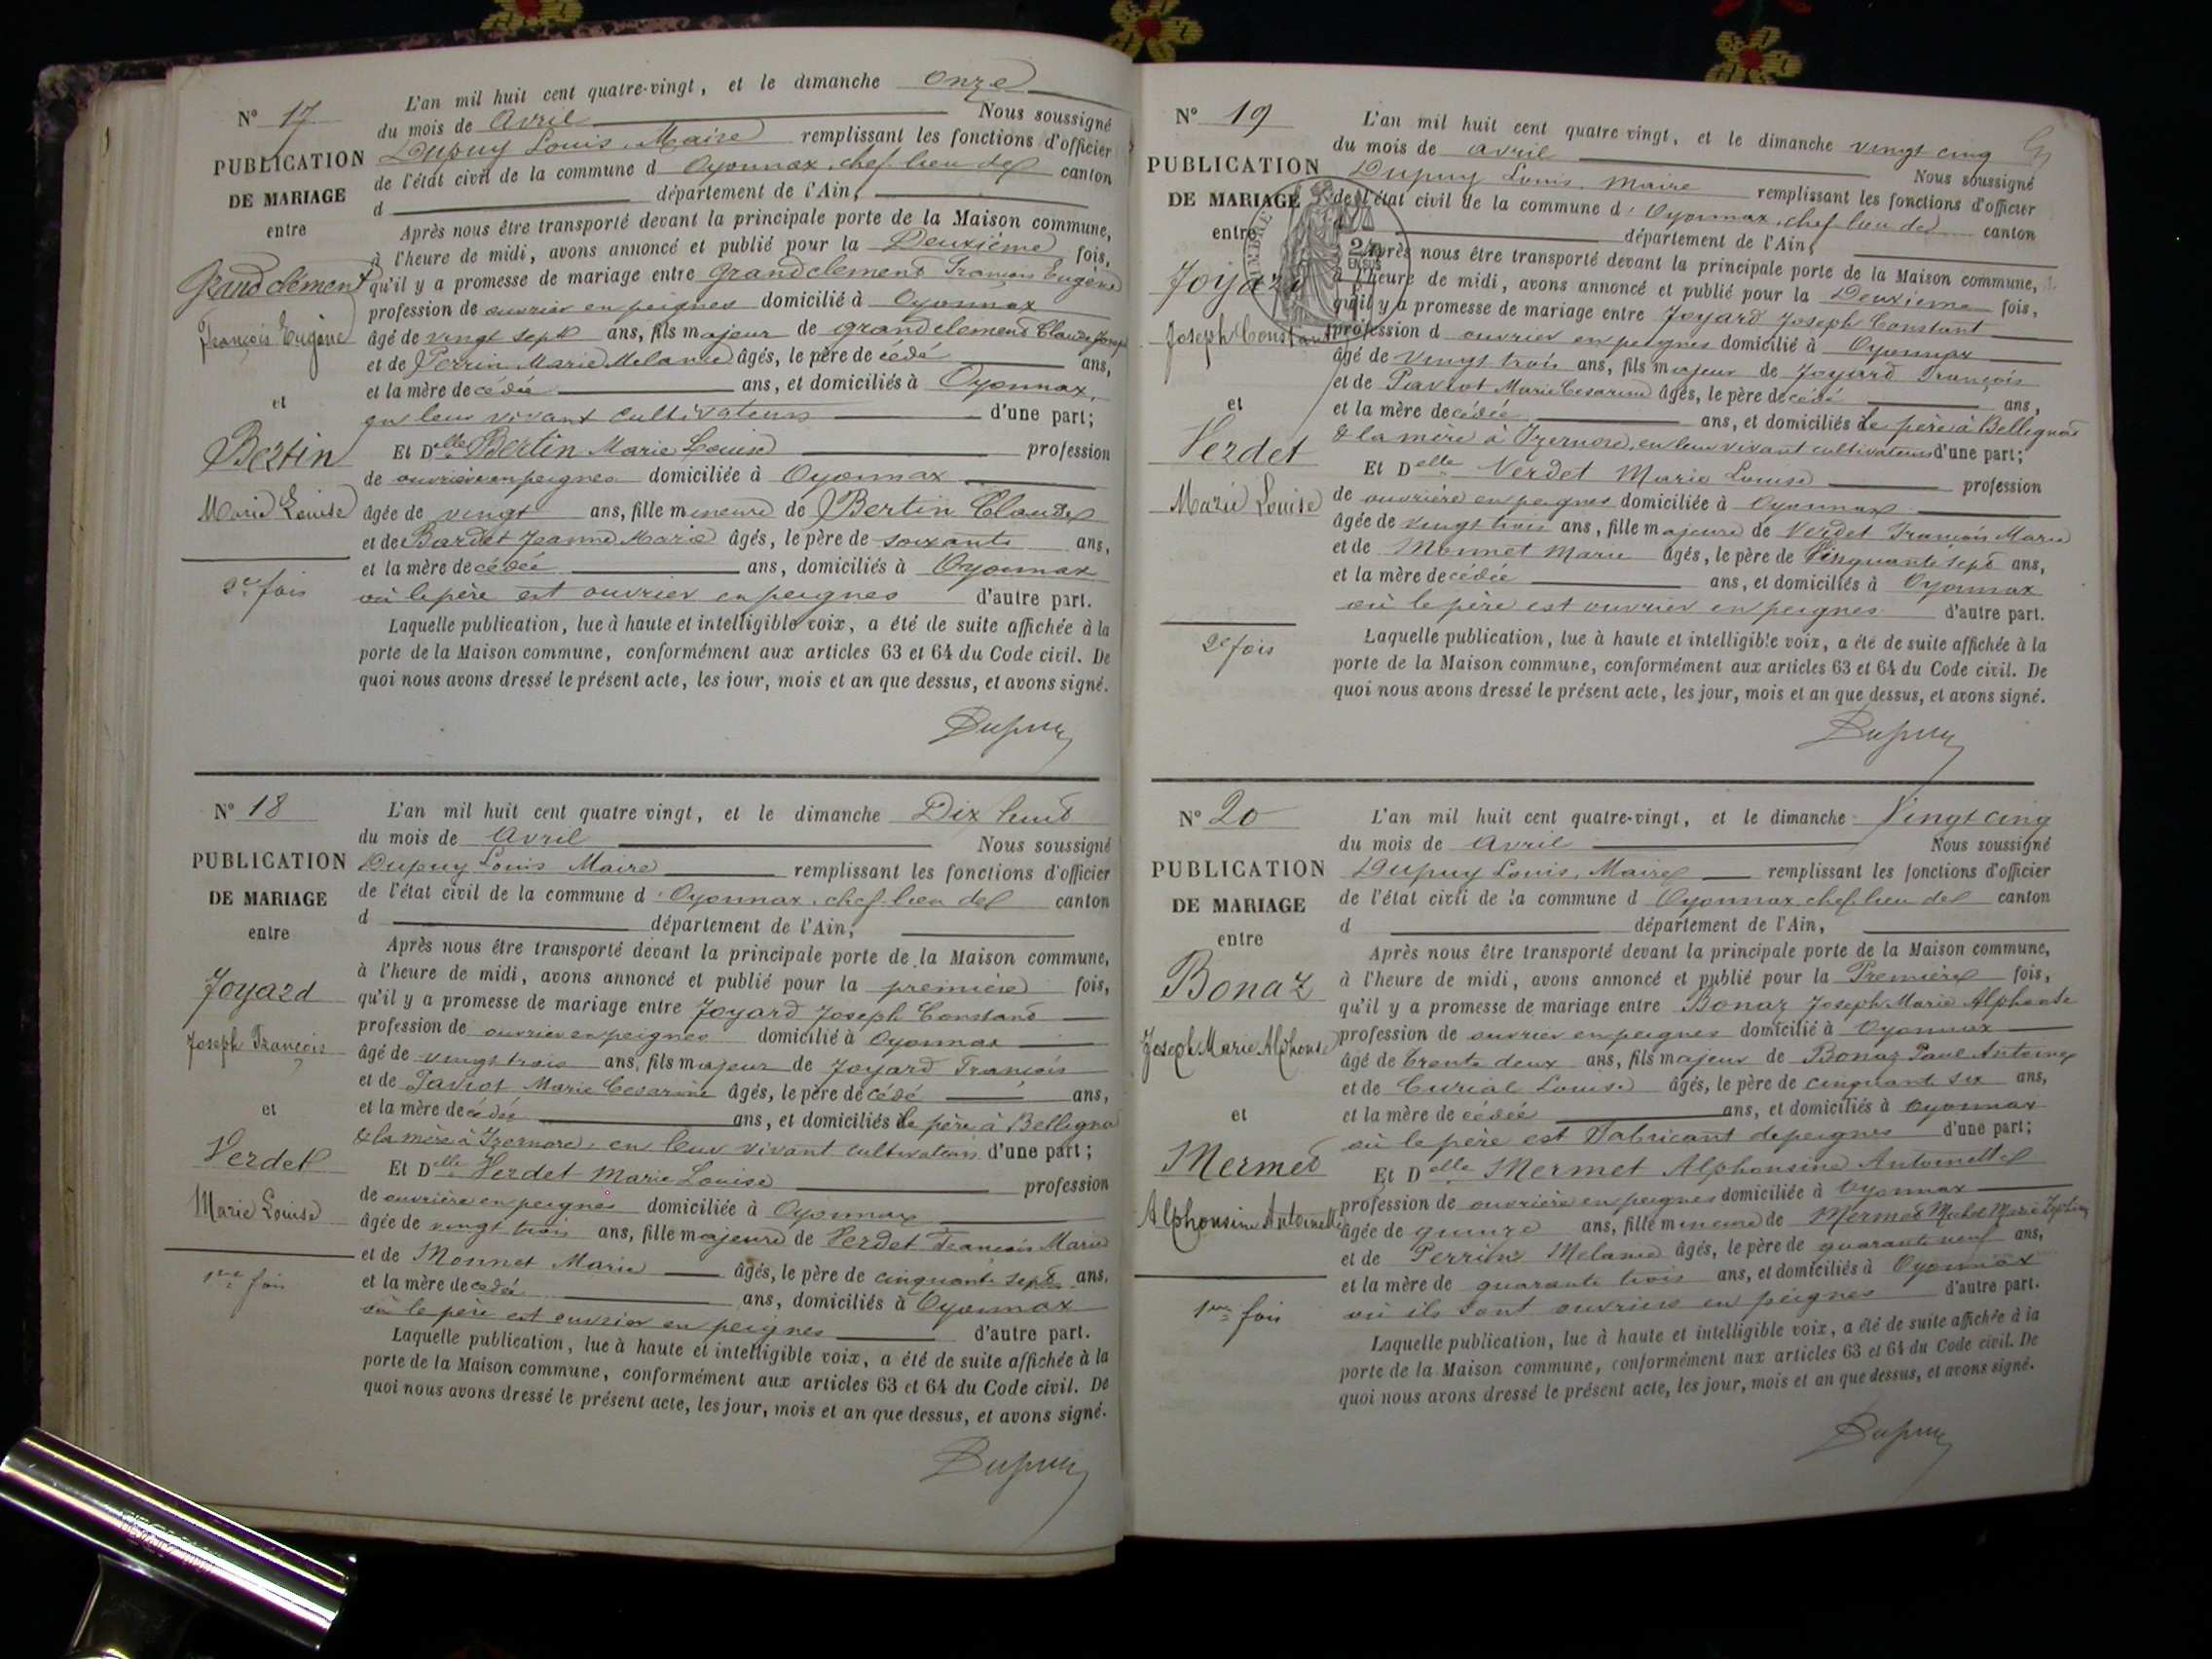 N° 17
PUBLICATION
DE MARIAGE
entre
Grandclément
François Eugène
et
Bertin
Marie Louise
2e fois
L'an mil huit cent quatre-vingt, et le dimanche onze
du mois de Avril Nous soussigné
Dupuy Louis, Maire remplissant les fonctions d'officier
de l'état civil de la commune d Oyonnax, chef lieu de canton
d département de l'Ain,
Après nous être transporté devant la principale porte de la Maison commune,
à l'heure de midi, avons annoncé et publié pour la Deuxième fois,
qu'il y a promesse de mariage entre Grandclement François Eugène
profession de ouvrier en peignes domicilié à Oyonnax
âgé de vingt sept ans, fils majeur de Grandclement Claude Joseph
et de Perrin Marie Melanie âgés, le père de cédé ans,
et la mère de cédée ans, et domiciliés à Oyonnax,
en leur vivant cultivateurs d'une part;
Et Delle Bertin Marie Louise profession
de ouvrière en peignes domiciliée à Oyonnax
âgée de vingt ans, fille mineure de Bertin Claude
et de Bardet Jeanne Marie âgés, le père de soixante ans,
et la mère de cédée ans, domiciliés à Oyonnax
où le père est ouvrier en peignes d'autre part.
Laquelle publication, lue à haute et intelligible voix, a été de suite affichée à la
porte de la Maison commune, conformément aux articles 63 et 64 du Code civil. De
quoi nous avons dressé le présent acte, les jour, mois et an que dessus, et avons signé.
Dupuy
N° 18
PUBLICATION
DE MARIAGE
entre
Joyard
Joseph François
et
Verdet
Marie Louise
1re fois
L'an mil huit cent quatre vingt, et le dimanche Dix huit
du mois de Avril Nous soussigné
Dupuy Louis Maire remplissant les fonctions d'officier
de l'état civil de la commune d'Oyonnax, chef lieu de canton
d département de l'Ain,
Après nous être transporté devant la principale porte de la Maison commune,
à l'heure de midi, avons annoncé et publié pour la première fois,
qu'il y a promesse de mariage entre Joyard Joseph Constant
profession de ouvrier en peignes domicilié à Oyonnax
âgé de vingt trois ans, fils majeur de Joyard François
et de Paviot Marie Cesarine âgés, le père de cédé ans,
et la mère de cédée ans, et domiciliés le père à Bellignat
& la mère à Izernore, en leur vivant cultivateurs d'une part;
Et Delle Verdet Marie Louise profession
de ouvrière en peignes domiciliée à Oyonnax
âgée de vingt trois ans, fille majeure de Verdet François Marie
et de Monnet Marie âgés, le père de cinquante sept ans,
et la mère de cédée ans, domiciliés à Oyonnax
où le père est ouvrier en peignes d'autre part.
Laquelle publication, lue à haute et intelligible voix, a été de suite affichée à la
porte de la Maison commune, conformément aux articles 63 et 64 du Code civil. De
quoi nous avons dressé le présent acte, les jour, mois et an que dessus, et avons signé.
Dupuy
N° 19
PUBLICATION
DE MARIAGE
entre
Joyard
Joseph Constant
et
Verdet
Marie Louise
2e fois
TIMBRE
2/10
EN SUS
L'an mil huit cent quatre vingt, et le dimanche vingt cinq
du mois de avril Nous soussigné
Dupuy Louis, maire remplissant les fonctions d'officier
de l'état civil de la commune d'Oyonnax, chef lieu de canton
département de l'Ain,
Après nous être transporté devant la principale porte de la Maison commune,
à l'heure de midi, avons annoncé et publié pour la Deuxième fois,
qu'il y a promesse de mariage entre Joyard Joseph Constant
profession d ouvrier en peignes domicilié à Oyonnax
âgé de vingt trois ans, fils majeur de Joyard François
et de Paviot Marie Cesarine âgés, le père de cédé ans,
et la mère de cédée ans, et domiciliés le père à Bellignat
& la mère à Izernore, en leur vivant cultivateurs d'une part;
Et Delle Verdet Marie Louise profession
de ouvrière en peignes domiciliée à Oyonnax
âgée de vingt trois ans, fille majeure de Verdet François Marie
et de Monnet Marie âgés, le père de Cinquante sept ans,
et la mère de cédée ans, et domiciliés à Oyonnax
où le père est ouvrier en peignes d'autre part.
Laquelle publication, lue à haute et intelligible voix, a été de suite affichée à la
porte de la Maison commune, conformément aux articles 63 et 64 du Code civil. De
quoi nous avons dressé le présent acte, les jour, mois et an que dessus, et avons signé.
Dupuy
N° 20
PUBLICATION
DE MARIAGE
entre
Bonaz
Joseph Marie Alphonse
et
Mermet
Alphonsine Antoinette
1re fois
L'an mil huit cent quatre-vingt, et le dimanche Vingt cinq
du mois de Avril Nous soussigné
Dupuy Louis, Maire remplissant les fonctions d'officier
de l'état civil de la commune d Oyonnax, chef lieu de canton
d département de l'Ain,
Après nous être transporté devant la principale porte de la Maison commune,
à l'heure de midi, avons annoncé et publié pour la Première fois,
qu'il y a promesse de mariage entre Bonaz Joseph Marie Alphonse
profession de ouvrier en peignes domicilié à Oyonnax
âgé de trente deux ans, fils majeur de Bonaz Paul Antoine
et de Curial Louise âgés, le père de cinquante six ans,
et la mère de cédée ans, et domiciliés à Oyonnax
où le père est Fabricant de peignes d'une part;
Et Delle Mermet Alphonsine Antoinette
profession de ouvrière en peignes domiciliée à Oyonnax
âgée de quinze ans, fille mineure de Mermet Michel Marie
et de Perrin Melanie âgés, le père de quarante neuf ans,
et la mère de quarante trois ans, et domiciliés à Oyonnax
où ils sont ouvriers en peignes d'autre part.
Laquelle publication, lue à haute et intelligible voix, a été de suite affichée à la
porte de la Maison commune, conformément aux articles 63 et 64 du Code civil. De
quoi nous avons dressé le présent acte, les jour, mois et an que dessus, et avons signé.
Dupuy